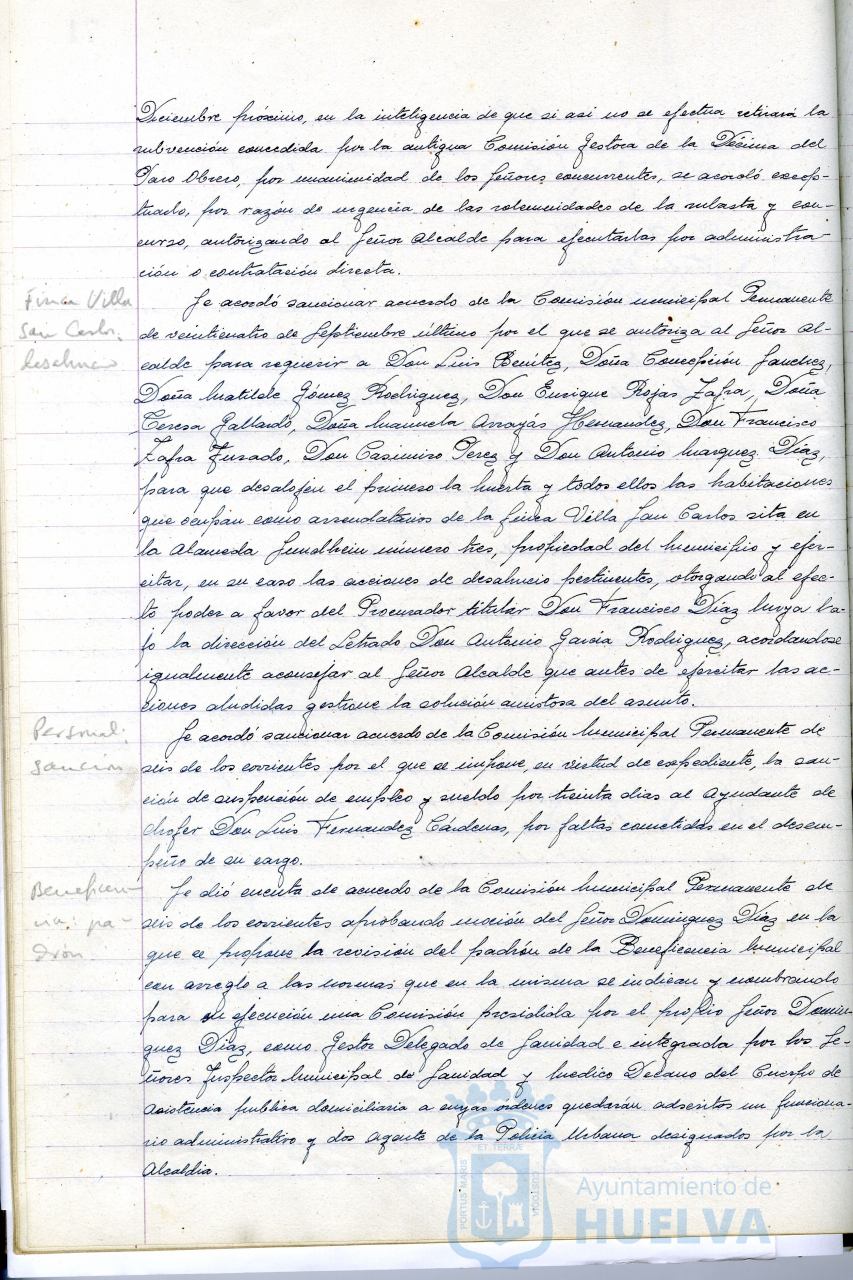 Diciembre próximo, en la inteligencia de que si asi no se efectua retirará la
subvención concedida por la antigua Comisión Gestora de la Décima del
Paro Obrero, por unanimidad de los Señores concurrentes, se acordó excep-
tuarlo, por razón de urgencia de las solemnidades de la subasta y con-
curso, autorizando al Señor Alcalde para ejecutarlas por administra-
ción o contratación directa.
Finca Villa
San Carlos,
desahucio
Se acordó sancionar acuerdo de la Comisión municipal Permanente
de veinticuatro de Septiembre último por el que se autoriza al Señor Al-
calde para requerir a Don Luis Benítez, Doña Concepción Sanchez,
Doña Matilde Gómez Rodriguez, Don Enrique Rojas Zafra, Doña
Teresa Gallardo, Doña Manuela Arrayás Hernandez, Don Francisco
Zafra Jurado, Don Casimiro Perez y Don Antonio Marquez Díaz,
para que desalojen el primero la huerta y todos ellos las habitaciones
que ocupan como arrendatarios de la finca Villa San Carlos sita en
la Alameda Sundhein número tres, propiedad del Municipio y ejer-
citar, en su caso las acciones de desahucio pertinentes, otorgando al efec-
to poder a favor del Procurador titular Don Francisco Díaz Moya ba-
jo la dirección del Letrado Don Antonio Garcia Rodriguez, acordandose
igualmente aconsejar al Señor Alcalde que antes de ejercitar las ac-
ciones aludidas gestione la solución amistosa del asunto.
Personal:
sanción
Se acordó sancionar acuerdo de la Comisión Municipal Permanente de
seis de los corrientes por el que se impone, en virtud de expediente, la san-
ción de suspención de empleo y sueldo por treinta dias al Ayudante de
chofer Don Luis Fernandez Cárdenas, por faltas cometidas en el desem-
peño de su cargo.
Beneficen-
cia: pa-
drón
Se dió cuenta de acuerdo de la Comisión Municipal Permanente de
seis de los corrientes aprobando moción del Señor Dominguez Díaz en la
que se propone la revisión del padrón de la Beneficencia Municipal
con arreglo a las normas que en la misma se indican y nombrando
para su ejecución una Comisión presidida por el propio Señor Domin-
guez Díaz, como Gestor Delegado de Sanidad e integrada por los Se-
ñores Inspector Municipal de Sanidad y Medico Decano del Cuerpo de
Asistencia publica domiciliaria a cuyas órdenes quedarán adscritos un funciona-
rio administrativo y dos Agente de la Policia Urbana designados por la
Alcaldia.
ET TERRÆ
PORTUS MARIS
CUSTODIA
Ayuntamiento de
HUELVA